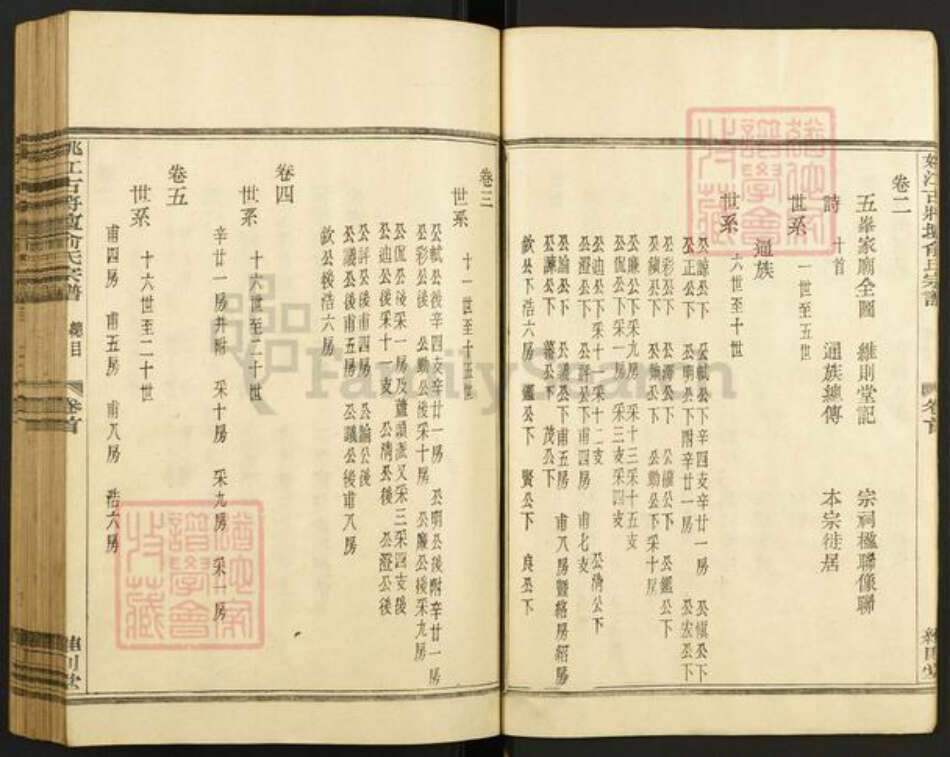 卷二
五峯家廟全圖 維則堂記 宗祠楹聯像聯
詩 十首 通族總傳 本宗徙居
世系 一世至五世
通族
世系 六世至十世
公諒公下 公軾公下辛四支辛廿一房 公愼公下
公正公下 公明公下附辛廿一房 公宏公下
公蘋公下 公澤公下 公權公下 公鑑公下
公彩公下 公勳公下采十房
公廉公下采九房 采十三采十五支
公侃公下采一房 采三支采四支
公迪公下采十一采十二支 公清公下
公澄公下 公評公下甫四房 甫七支
公論公下 公議公下甫五房 甫八房暨格房紹房
公諫公下 藩公下 茂公下
欽公下浩六房 鑑公下 賢公下 良公下
卷三
世系 十一世至十五世
公軾公後辛四支辛廿一房 公明公後附辛廿一房
公彩公後 公勳公後采十房 公廉公後采九房
公侃公後采一房及蘆頭派又采三采四支後
公迪公後采十一支 公清公後 公澄公後
公評公後甫四房 公論公後
公議公後甫五房 公議公後甫八房
欽公後浩六房
卷四
世系 十六世至二十世
辛廿一房并附 采十房 采九房 采一房
卷五
世系 十六世至二十世
甫四房 甫五房 甫八房 浩六房
總目
卷首
FamilySearch